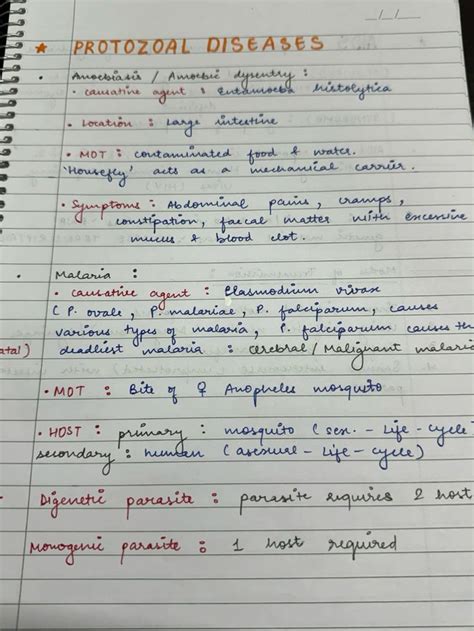 _/_/_
★ PROTOZOAL DISEASES
• Amoebiasis / Amoebic dysentry :
• causative agent : Entamoeba histolytica
• Location : Large intestine
• MOT : contaminated food & water.
'Housefly' acts as a mechanical carrier.
• Symptoms : Abdominal pains, cramps,
constipation, faecal matter with excessive
mucus & blood clot.
• Malaria :
• causative agent : Plasmodium vivax
( P. ovale, P. malariae, P. falciparum, causes
various types of malaria, P. falciparum causes the
atal) deadliest malaria : cerebral / Malignant malaria
• MOT : Bite of ♀ Anopheles mosquito
• HOST : primary : mosquito ( sex. - Life - cycle)
secondary : human ( asexual - Life - cycle)
- Digenetic parasite : parasite requires 2 host
Monogenic parasite : 1 host required